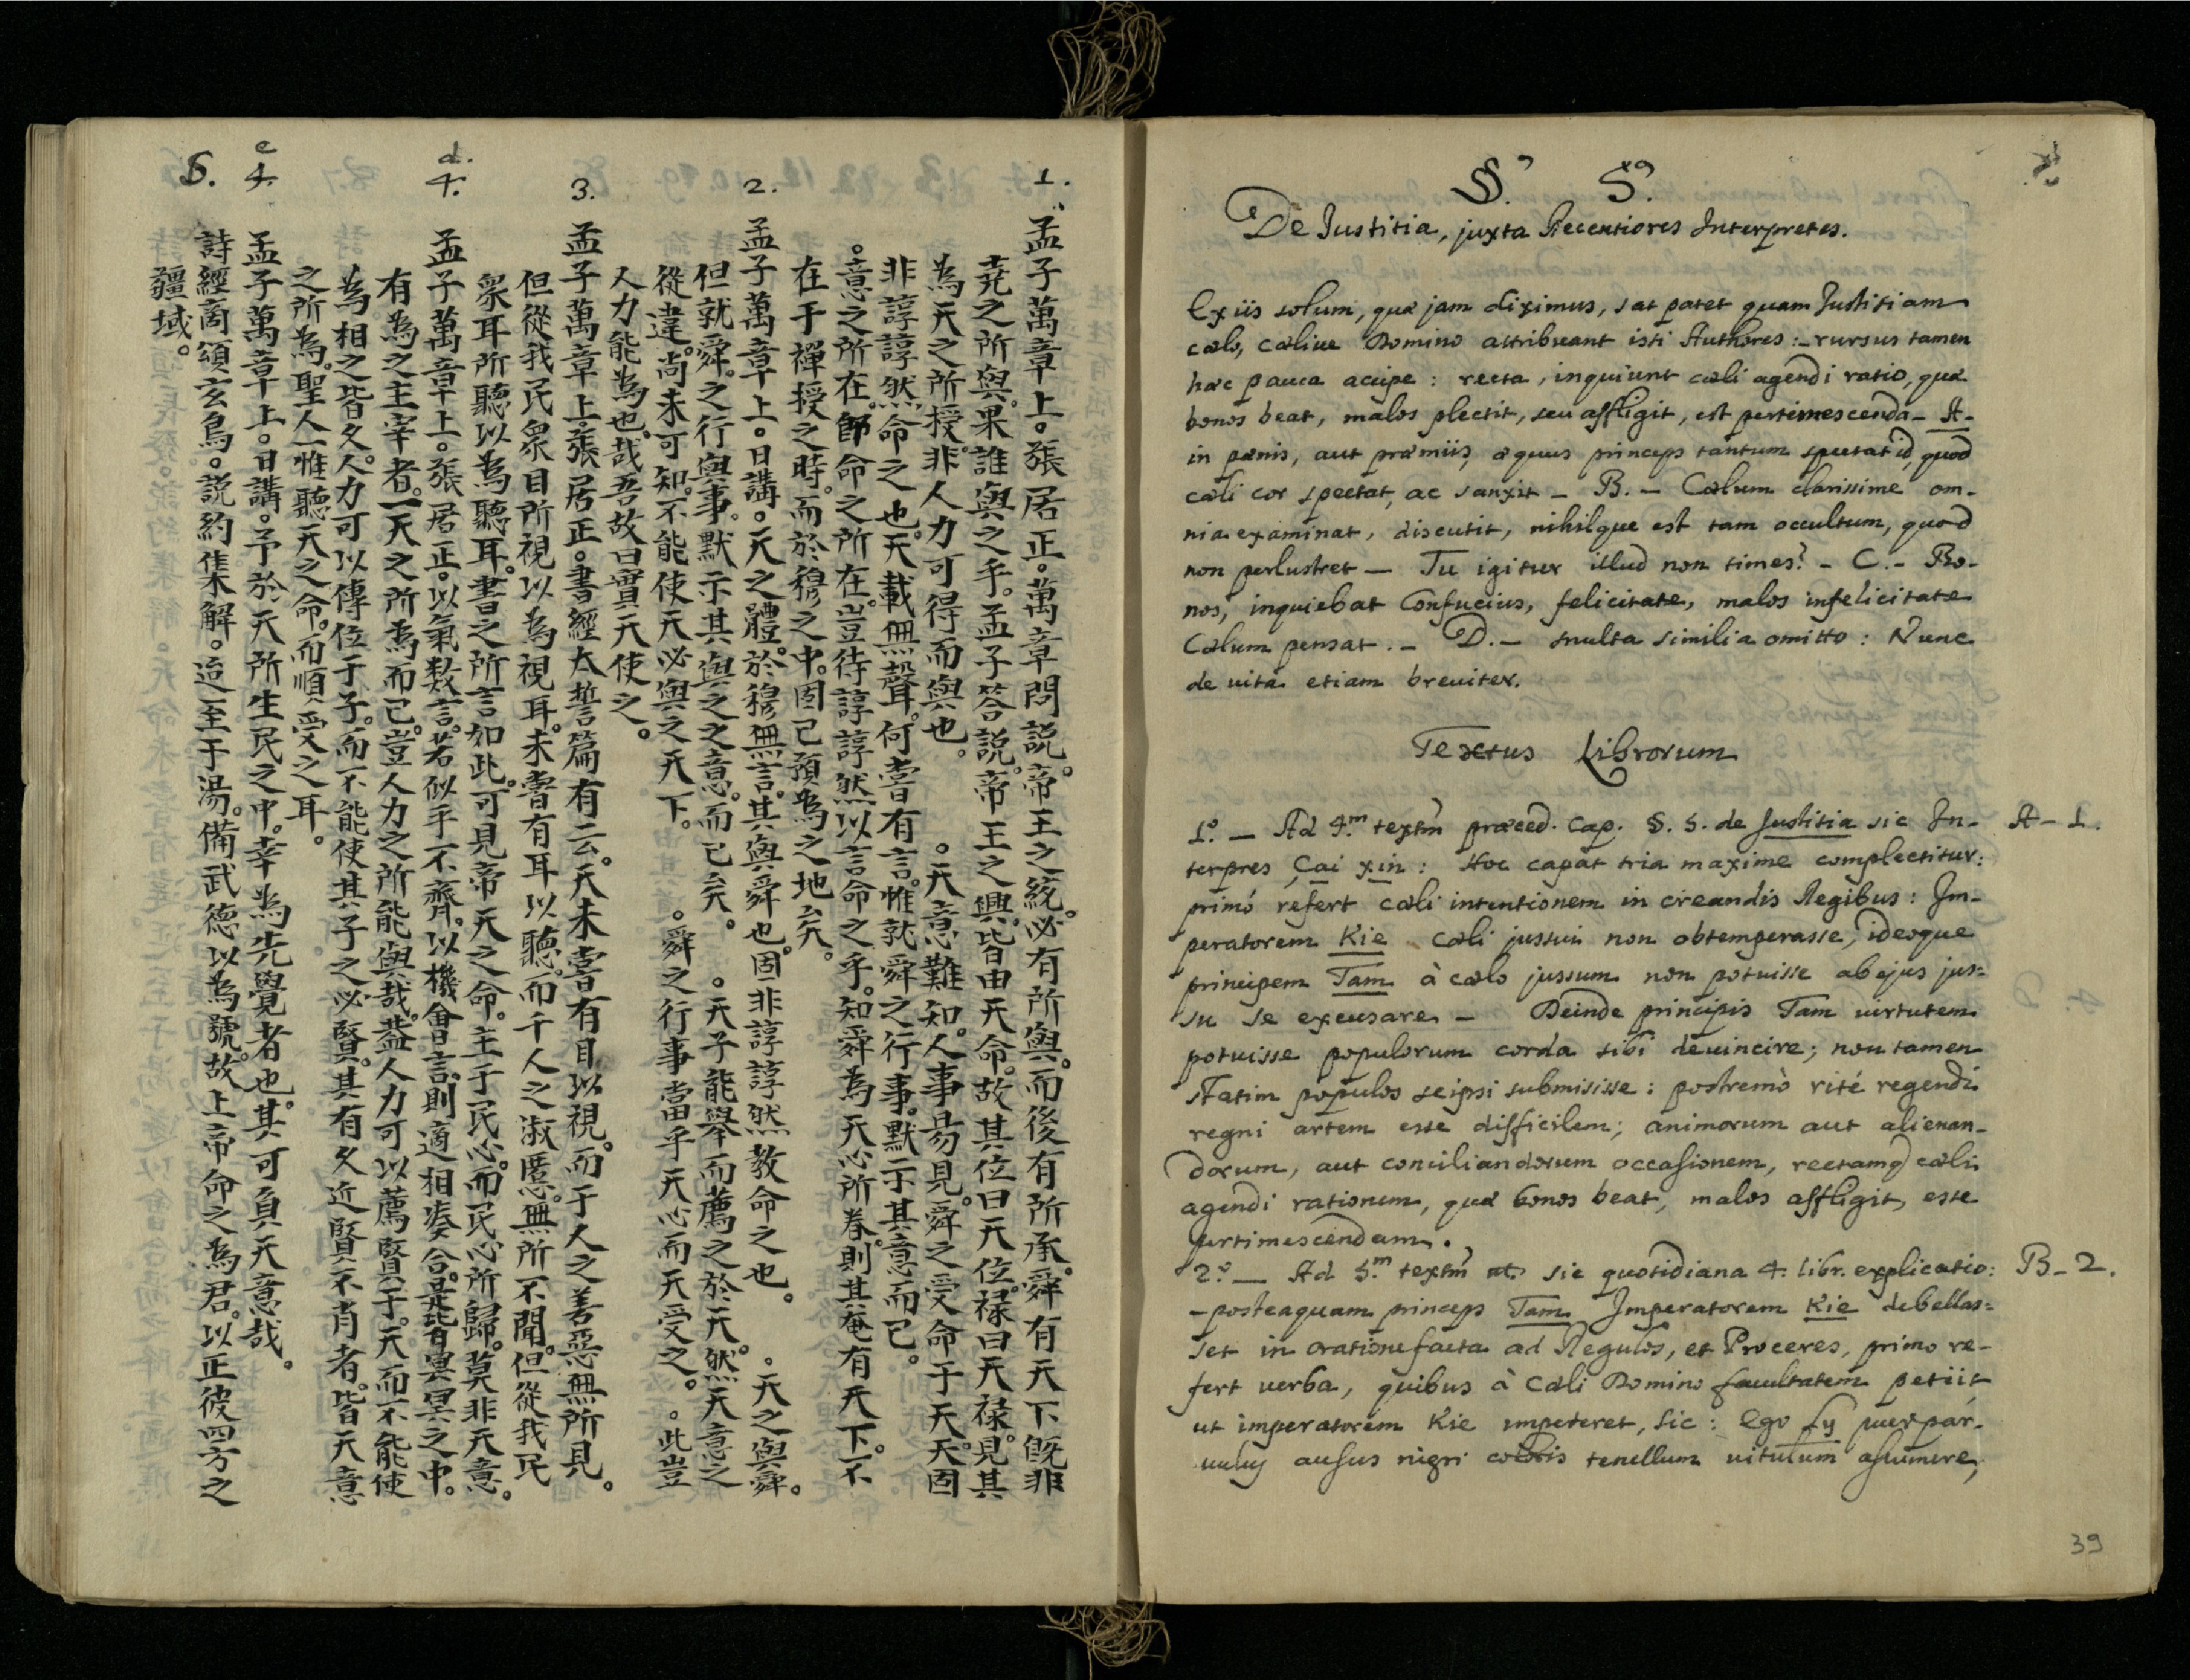 1.
孟子萬章上。張居正。萬章問説。帝王之統。必有所與。而後有所承。舜有天下。既非
堯之所與。果誰與之乎。孟子答説。帝王之興。皆由天命。故其位曰天位。祿曰天祿。見其
為天之所授。非人力可得而與也。。天意難知。人事易見。舜之受命于天。天固
非諄諄然命之也。天載無聲。何嘗有言。惟就舜之行事。默示其意而已。
。意之所在。即命之所在。豈待諄諄然以言命之乎。知舜為天心所眷。則其奄有天下。不
在于禪授之時。而於穆之中。固已預為之地矣。
2.
孟子萬章上。日講。天之體。於穆無言。其與舜也。固非諄諄然教命之也。。天之與舜。
但就舜。之行與事。默示其與之之意。而已矣。。天子能舉而薦之於天。然天意之
從違。尚未可知。不能使天必與之天下。。舜之行事當乎天心而天受之。。此豈
人力能為也哉。吾故曰實天使之。
3.
孟子萬章上。張居正。書經太誓篇有云。天未嘗有目以視。而于人之善惡無所見。
但從我民眾目所視以為視耳。未嘗有耳以聽。而千人之淑慝。無所不聞。但從我民
眾耳所聽以為聽耳。書之所言如此。可見帝天之命。主于民心。而民心所歸。莫非天意。
d.
4.
孟子萬章上。張居正。以氣数言。若似乎不齊。以機會言。則適相湊合。是皆冥冥之中。
有為之主宰者。一天之所為而已。豈人力之所能與哉。葢人力可以薦賢于。天而不能使
為相之皆久。人力可以傳位于子。而不能使其子之必賢。其有久近賢不肖者。皆天意
之所為。聖人一惟聽天之命。而順受之耳。
e
4.
孟子萬章上。日講。予於天所生民之中。幸為先覺者也。其可負天意哉。
5.
詩經商頌玄鳥。説約集解。迨至于湯。備武德以為號。故上帝命之為君。以正彼四方之
疆域。
§.° 5.°
De Justitia, juxta Recentiores Interpretes.
Ex iis solum, quæ jam diximus, sat patet quam Justitiam
cœlo, cœlive Domino attribuant isti Authores: - rursus tamen
hæc pauca accipe: recta, inquiunt cœli agendi ratio, quæ
bonos beat, malos plectit, seu affligit, est pertimescenda - A -
in pœnis, aut præmiis, æquus princeps tantum spectat id, quod
cœli cor spectat, ac sanxit - B. - Cœlum clarissime om-
nia examinat, discutit, nihilque est tam occultum, quod
non perlustret — Tu igitur illud non times? - C. - Bo-
nos, inquiebat Confucius, felicitate, malos infelicitate
Cœlum pensat. - D. - multa similia omitto: Nunc
de vita etiam breviter.
Textus Librorum
1.° — Ad 4.m textm præced. Cap. §. 5. de Justitia sic In- A - 1.
terpres Çai xin: Hoc caput tria maxime complectitur:
primò refert cœli intentionem in creandis Regibus: Im-
peratorem Kie cœli jussui non obtemperasse, ideoque
principem Tam à cœlo jussum non potuisse ab ejus jus=
su se excusare - Deinde principis Tam virtutem
potuisse populorum corda sibi devincire; non tamen
statim populos seipsi submisisse: postremò ritè regendi
regni artem esse difficilem; animorum aut alienan-
dorum, aut conciliandorum occasionem, rectamq cœli
agendi rationem, quæ bonos beat, malos affligit, esse
pertimescendam.
2.° — Ad 5.m textm sic quotidiana 4. libr. explicatio: B - 2.
- posteaquam princeps Tam Imperatorem Kie debellas=
set in oratione facta ad Regulos, et Proceres, primo re-
fert verba, quibus à Cœli Domino facultatem petiit
ut imperatorem Kie impeteret, sic: Ego Ly puer par-
vulus ausus nigri coloris tenellum vitulum assumere,
39